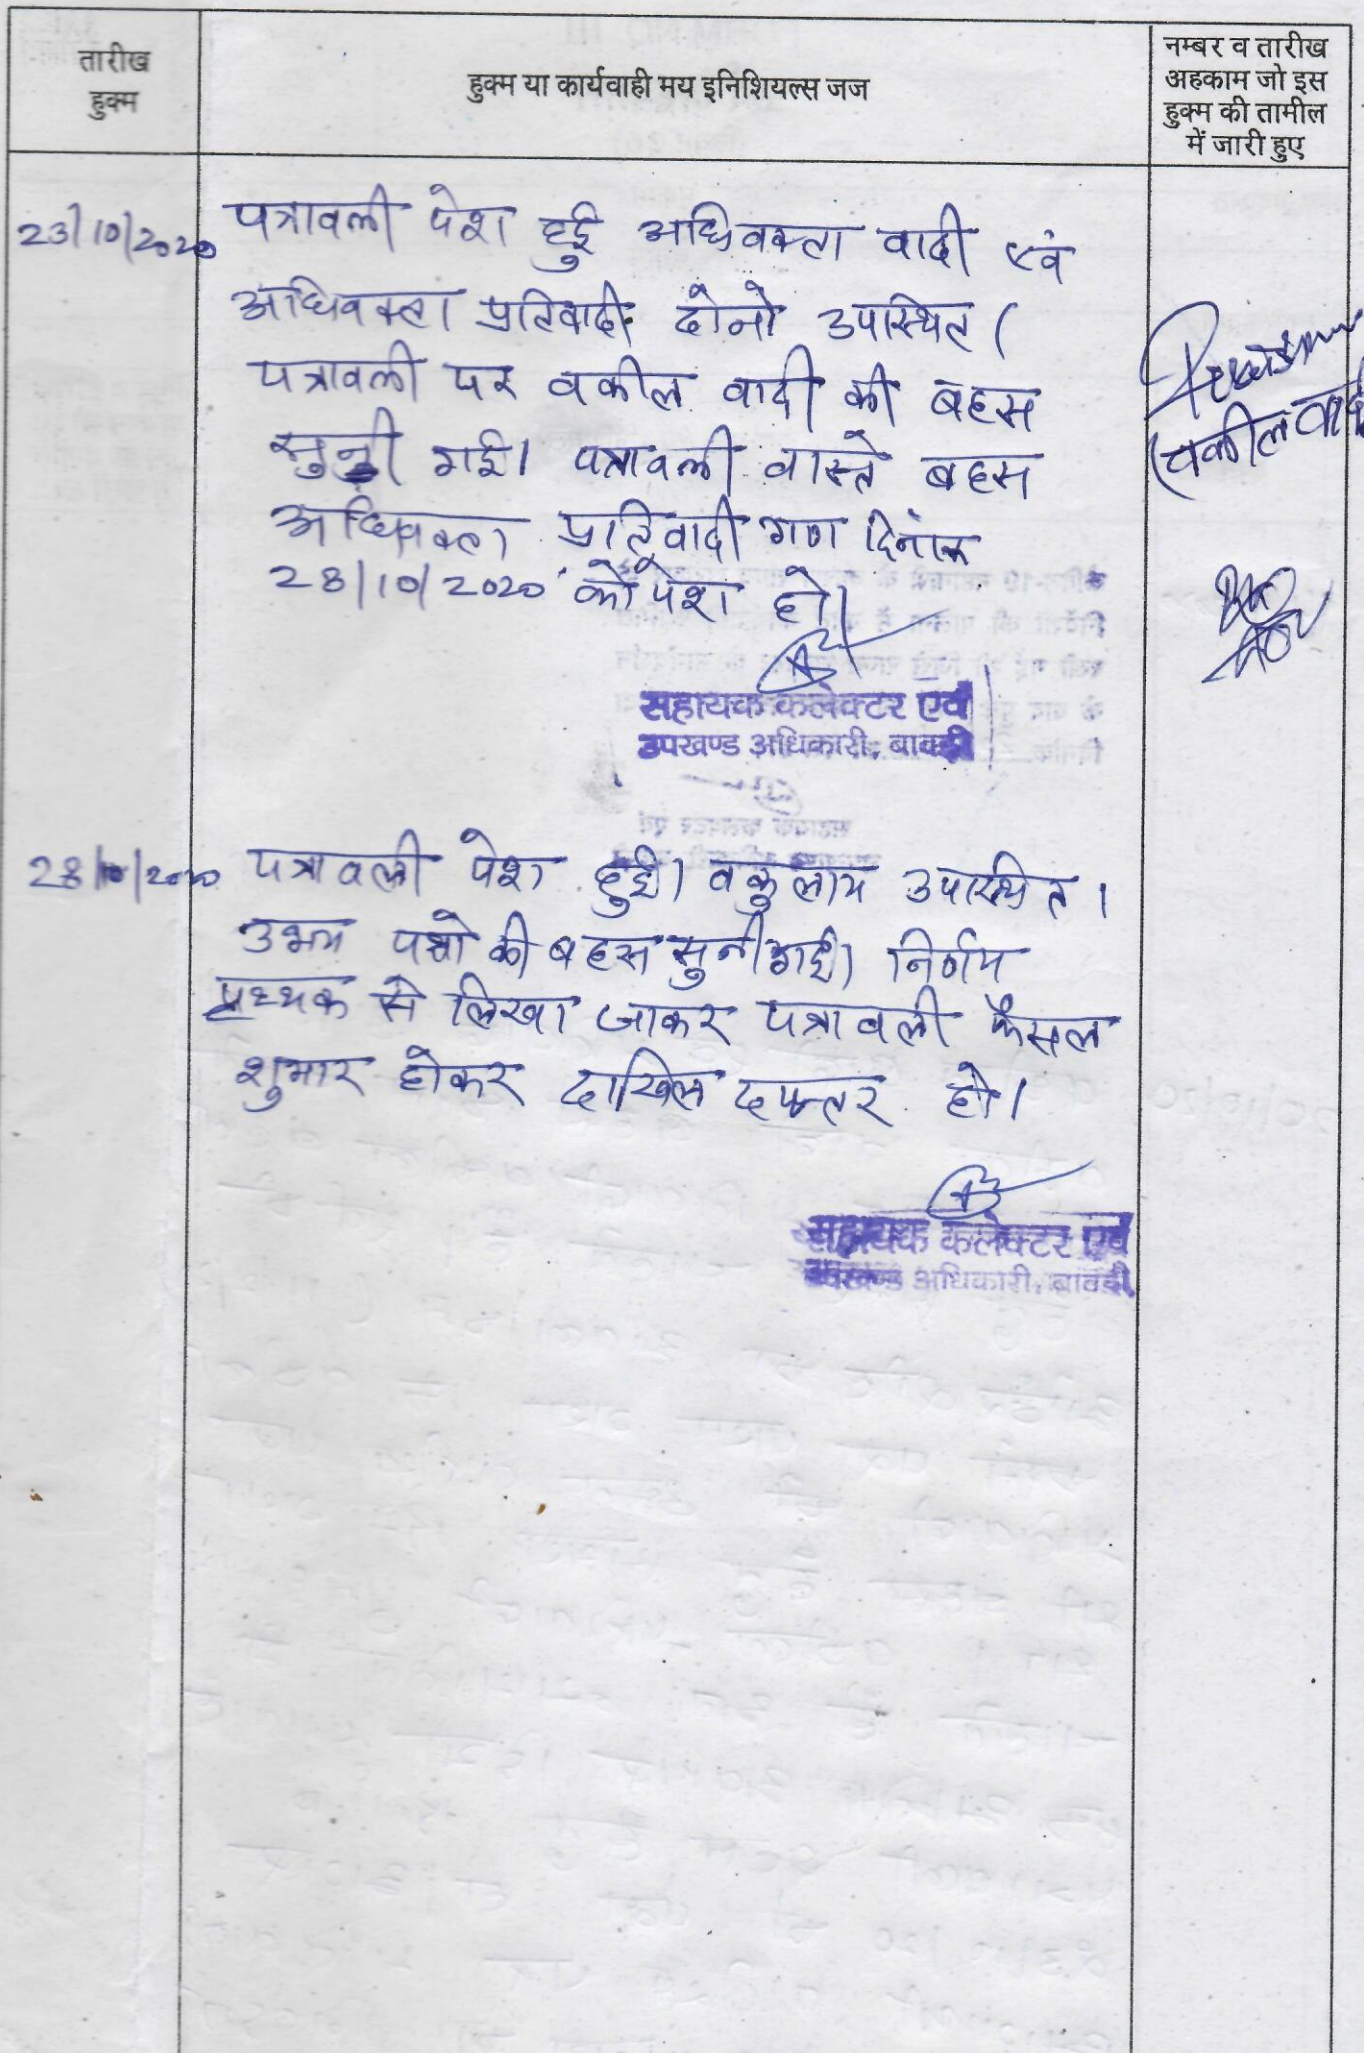 तारीख
हुक्म
हुक्म या कार्यवाही मय इनिशियल्स जज
नम्बर व तारीख
अहकाम जो इस
हुक्म की तामील
में जारी हुए
23/10/2020
पत्रावली पेश हुई अधिवक्ता वादी एवं
अधिवक्ता प्रतिवादी दोनो उपस्थित।
पत्रावली पर वकील वादी की बहस
सुनी गई। पत्रावली वास्ते बहस
अधिवक्ता प्रतिवादी गण दिनांक
28/10/2020 को पेश हो।
वकील वादी
सहायक कलेक्टर एवं
उपखण्ड अधिकारी, बावडी
28/10/2020
पत्रावली पेश हुई। वकुलाय उपस्थित।
उभय पक्षो की बहस सुनी गई। निर्णय
प्रथ्थक से लिखा जाकर पत्रावली फैसल
शुमार होकर दाखिल दफ्तर हो।
सहायक कलेक्टर एवं
उपखण्ड अधिकारी, बावडी